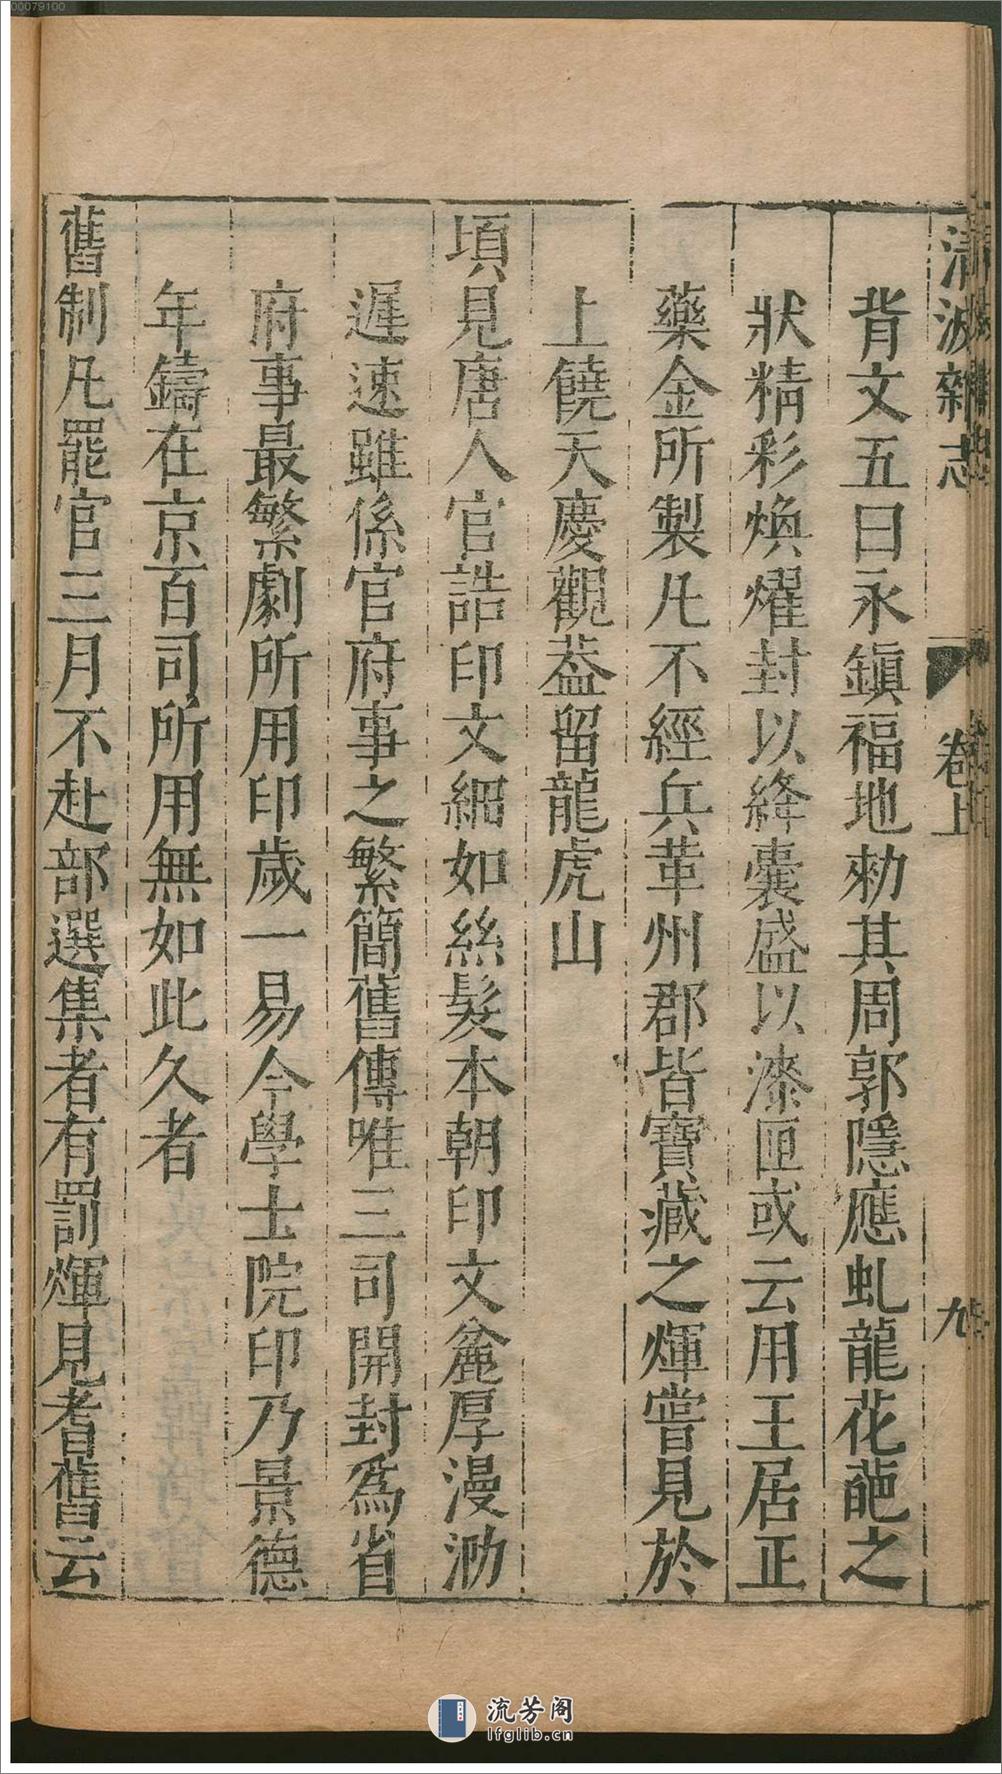 清波雜志
卷上
九
背文五曰永鎮福地勑其周郭隱應虬龍花葩之
狀精彩煥燿封以絳囊盛以漆匣或云用王居正
藥金所製凡不經兵革州郡皆寶藏之煇嘗見於
上饒天慶觀葢留龍虎山
頃見唐人官誥印文細如絲髮本朝印文麄厚漫泐
遲速雖係官府事之繁簡舊傳唯三司開封爲省
府事最繁劇所用印歲一易今學士院印乃景德
年鑄在京百司所用無如此久者
舊制凡罷官三月不赴部選集者有罰煇見耆舊云
00079100
流芳阁
lfglib.cn